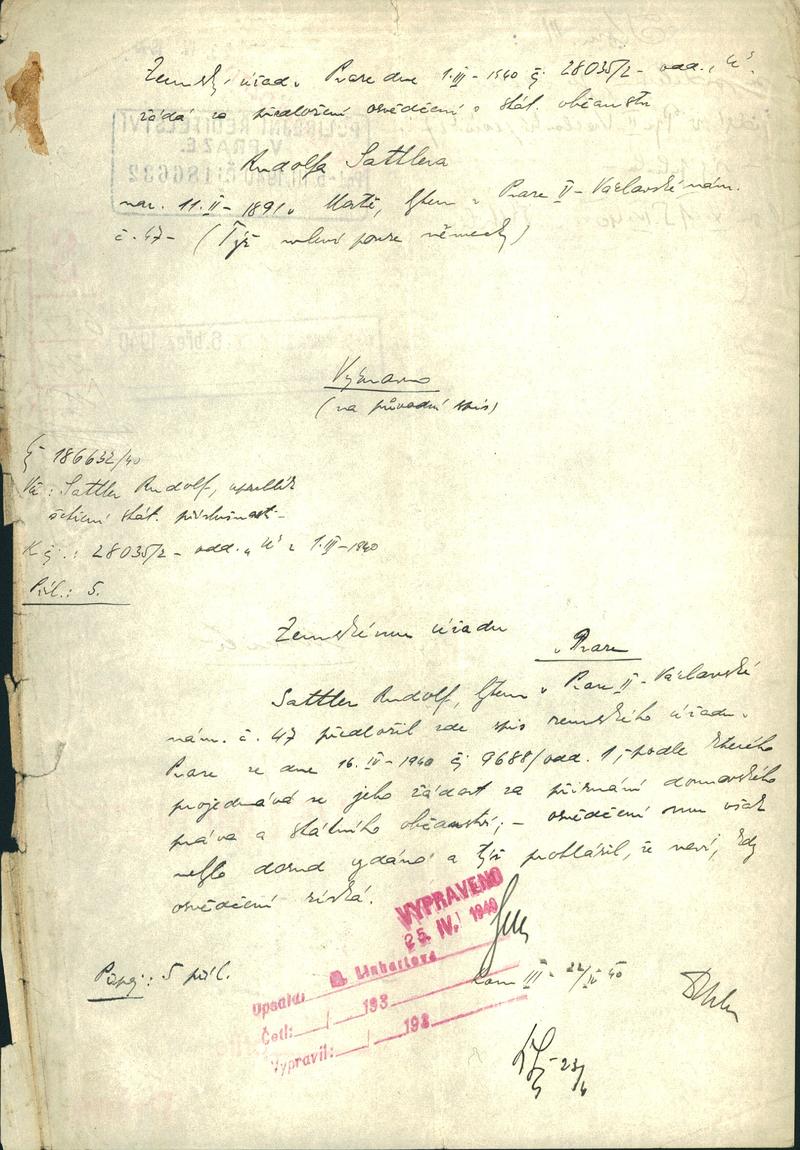 Zemský úřad v Praze dne 1.III-1940 čj. 28035/2- odd. „
žádá za předložení osvědčení o stát. občanství
Rudolfa Sattlera
nar. 11.II-1891 v , bytem v Praze II-Václavské nám.
č. 47- (Týž mluví pouze německy)
(na původní spis)
Čj 186632/40
Věc: Sattler Rudolf,
šetření stát. příslušnosti-
K čj.: 28035/2- odd. „ z 1.III-1940
Příl.: 5.
Zemskému úřadu
v Praze
Sattler Rudolf, bytem v Praze II-Václavské
nám. č. 47 předložil zde spis zemského úřadu v
Praze ze dne 16.IV-1940 čj 9688/odd. 1,-podle kterého
projednává se jeho žádost za přiznání domovského
práva a státního občanství;- osvědčení mu však
nebylo dosud vydáno a týž prohlásil, že neví, kdy
osvědčení získá.
VYPRAVENO
25. IV. 1940
Připoj: 5 příl.
III- 22/IV 40
Opsala: Linhartová
Četl: / 193
Vypravil: / 193
23/4